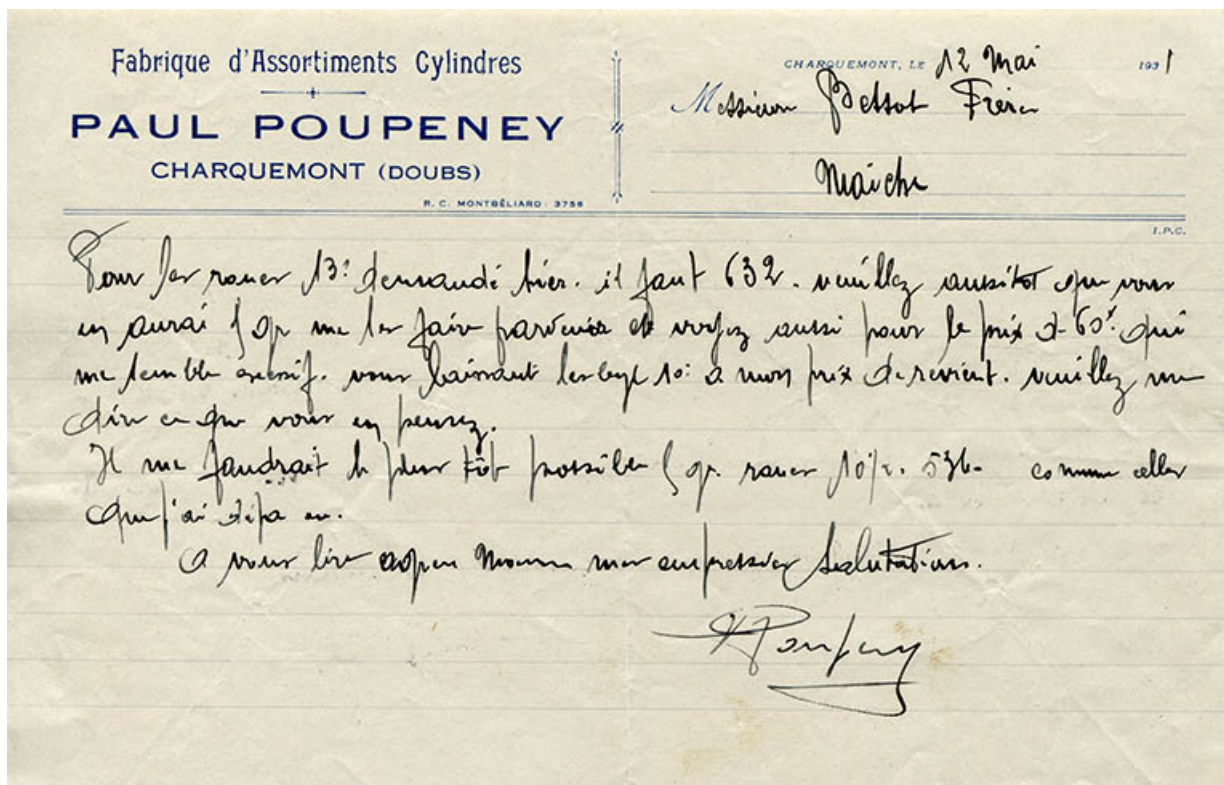 Fabrique d'Assortiments Cylindres
PAUL POUPENEY
CHARQUEMONT (DOUBS)
R. C. MONTBÉLIARD: 3756
CHARQUEMONT, LE 12 Mai 1931
Messieurs Frères
Maiche
I.P.C.
Pour les roues 13''' demandé hier. il faut 632. veuillez aussitot que vous
en aurai me les faire parvenir et voyez aussi pour le prix de 60f. qui
me semble exessif. vous laissant les 10''' a mon prix de revient. veuillez me
dire ce que vous en pensez.
Il me faudrait le plus tôt possible roues 10 1/2. 536. comme celles
que j'ai déja eu.
A vous lire mes empressées Salutations.
Poupeney